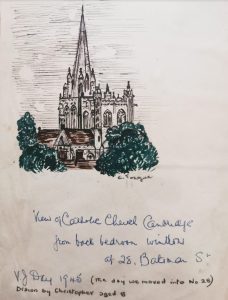 "View of Catholic Church Cambridge"
from back bedroom window
of 28. Bateman St
VJ Day 1945 (The day we moved into No 28)
Drawn by Christopher aged 8